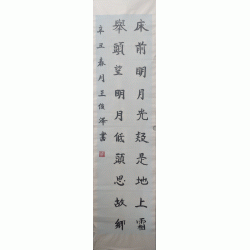 床前明月光疑是地上霜
舉頭望明月低頭思故鄉
辛丑春月王俊澤書